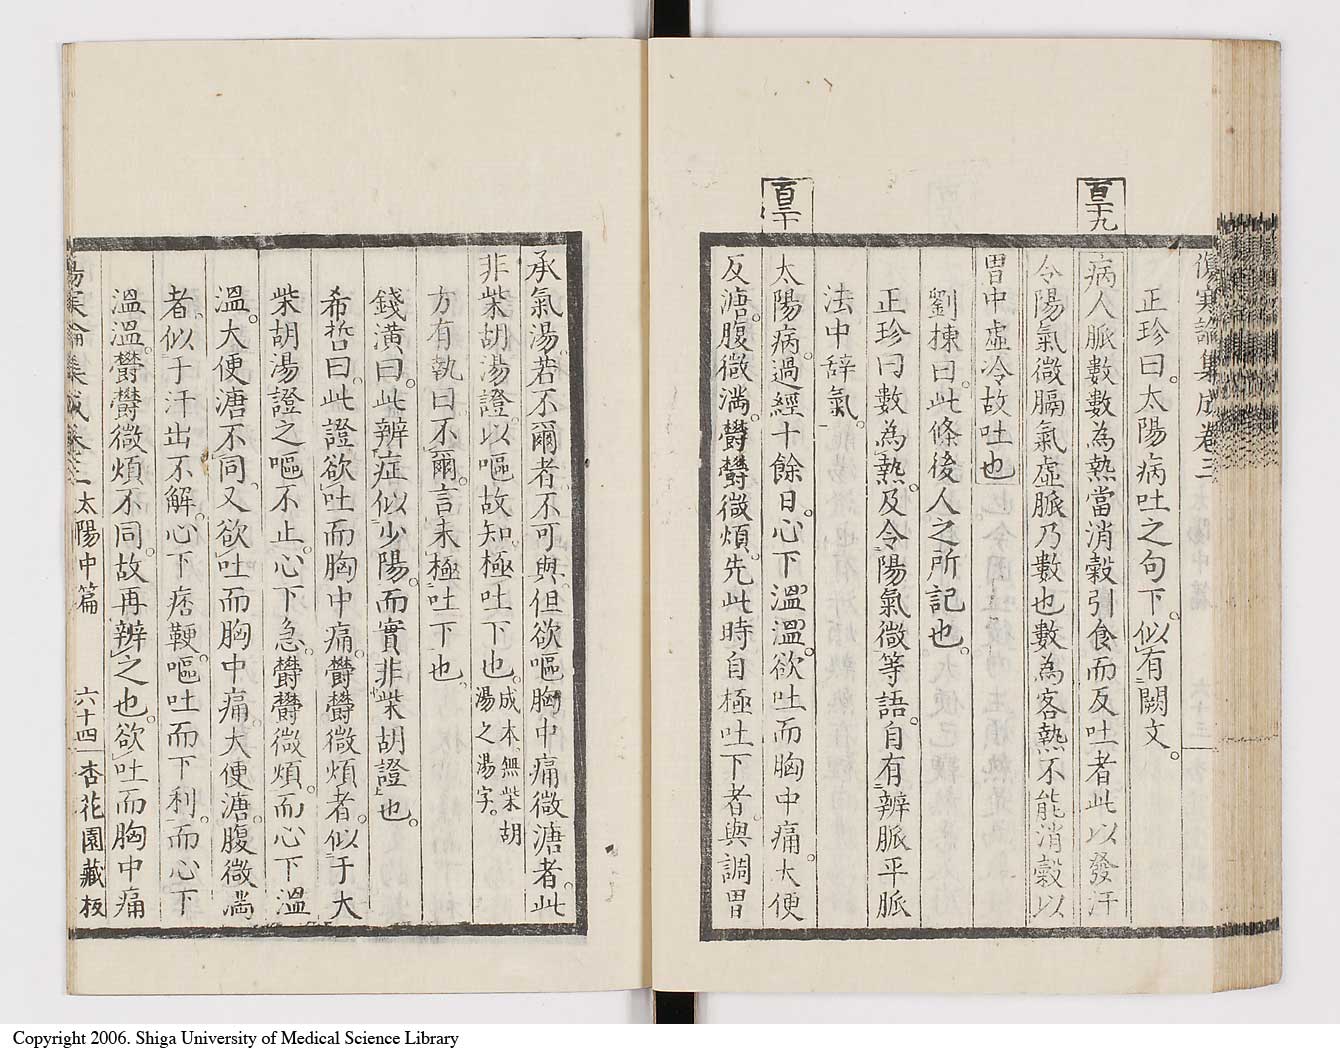 傷寒論集成卷三
正珍曰。太陽病吐之句下。似有闕文。
百十九
病人脈數數為熱當消穀引食而反吐者此以發汗
令陽氣微膈氣虛脈乃數也數為客熱不能消穀以
胃中虛冷故吐也
劉棟曰。此條後人之所記也。
正珍曰數為熱。及令陽氣微等語。自有辨脈平脈
法中辞氣。
百二十
太陽病。過經十餘日。心下溫溫。欲吐而胸中痛。大便
反溏。腹微滿。欝欝微煩。先此時自極吐下者。與調胃
承氣湯。若不爾者。不可與。但欲嘔胸中痛微溏者。此
非柴胡湯證。以嘔故知極吐下也。成本無柴胡
湯之湯字。
方有執曰。不爾。言未極吐下也。
錢潢曰。此辨症似少陽。而實非柴胡證也。
希哲曰。此證欲吐而胸中痛。欝欝微煩者。似于大
柴胡湯證之嘔不止。心下急。欝欝微煩。而心下溫
溫。大便溏不同。又欲吐而胸中痛。大便溏。腹微滿
者。似于汗出不解。心下痞鞕。嘔吐而下利。而心下
溫溫。欝欝微煩不同。故再辨之也。欲吐而胸中痛
傷寒論集成卷三 太陽中篇 六十四 杏花園藏板
Copyright 2006. Shiga University of Medical Science Library